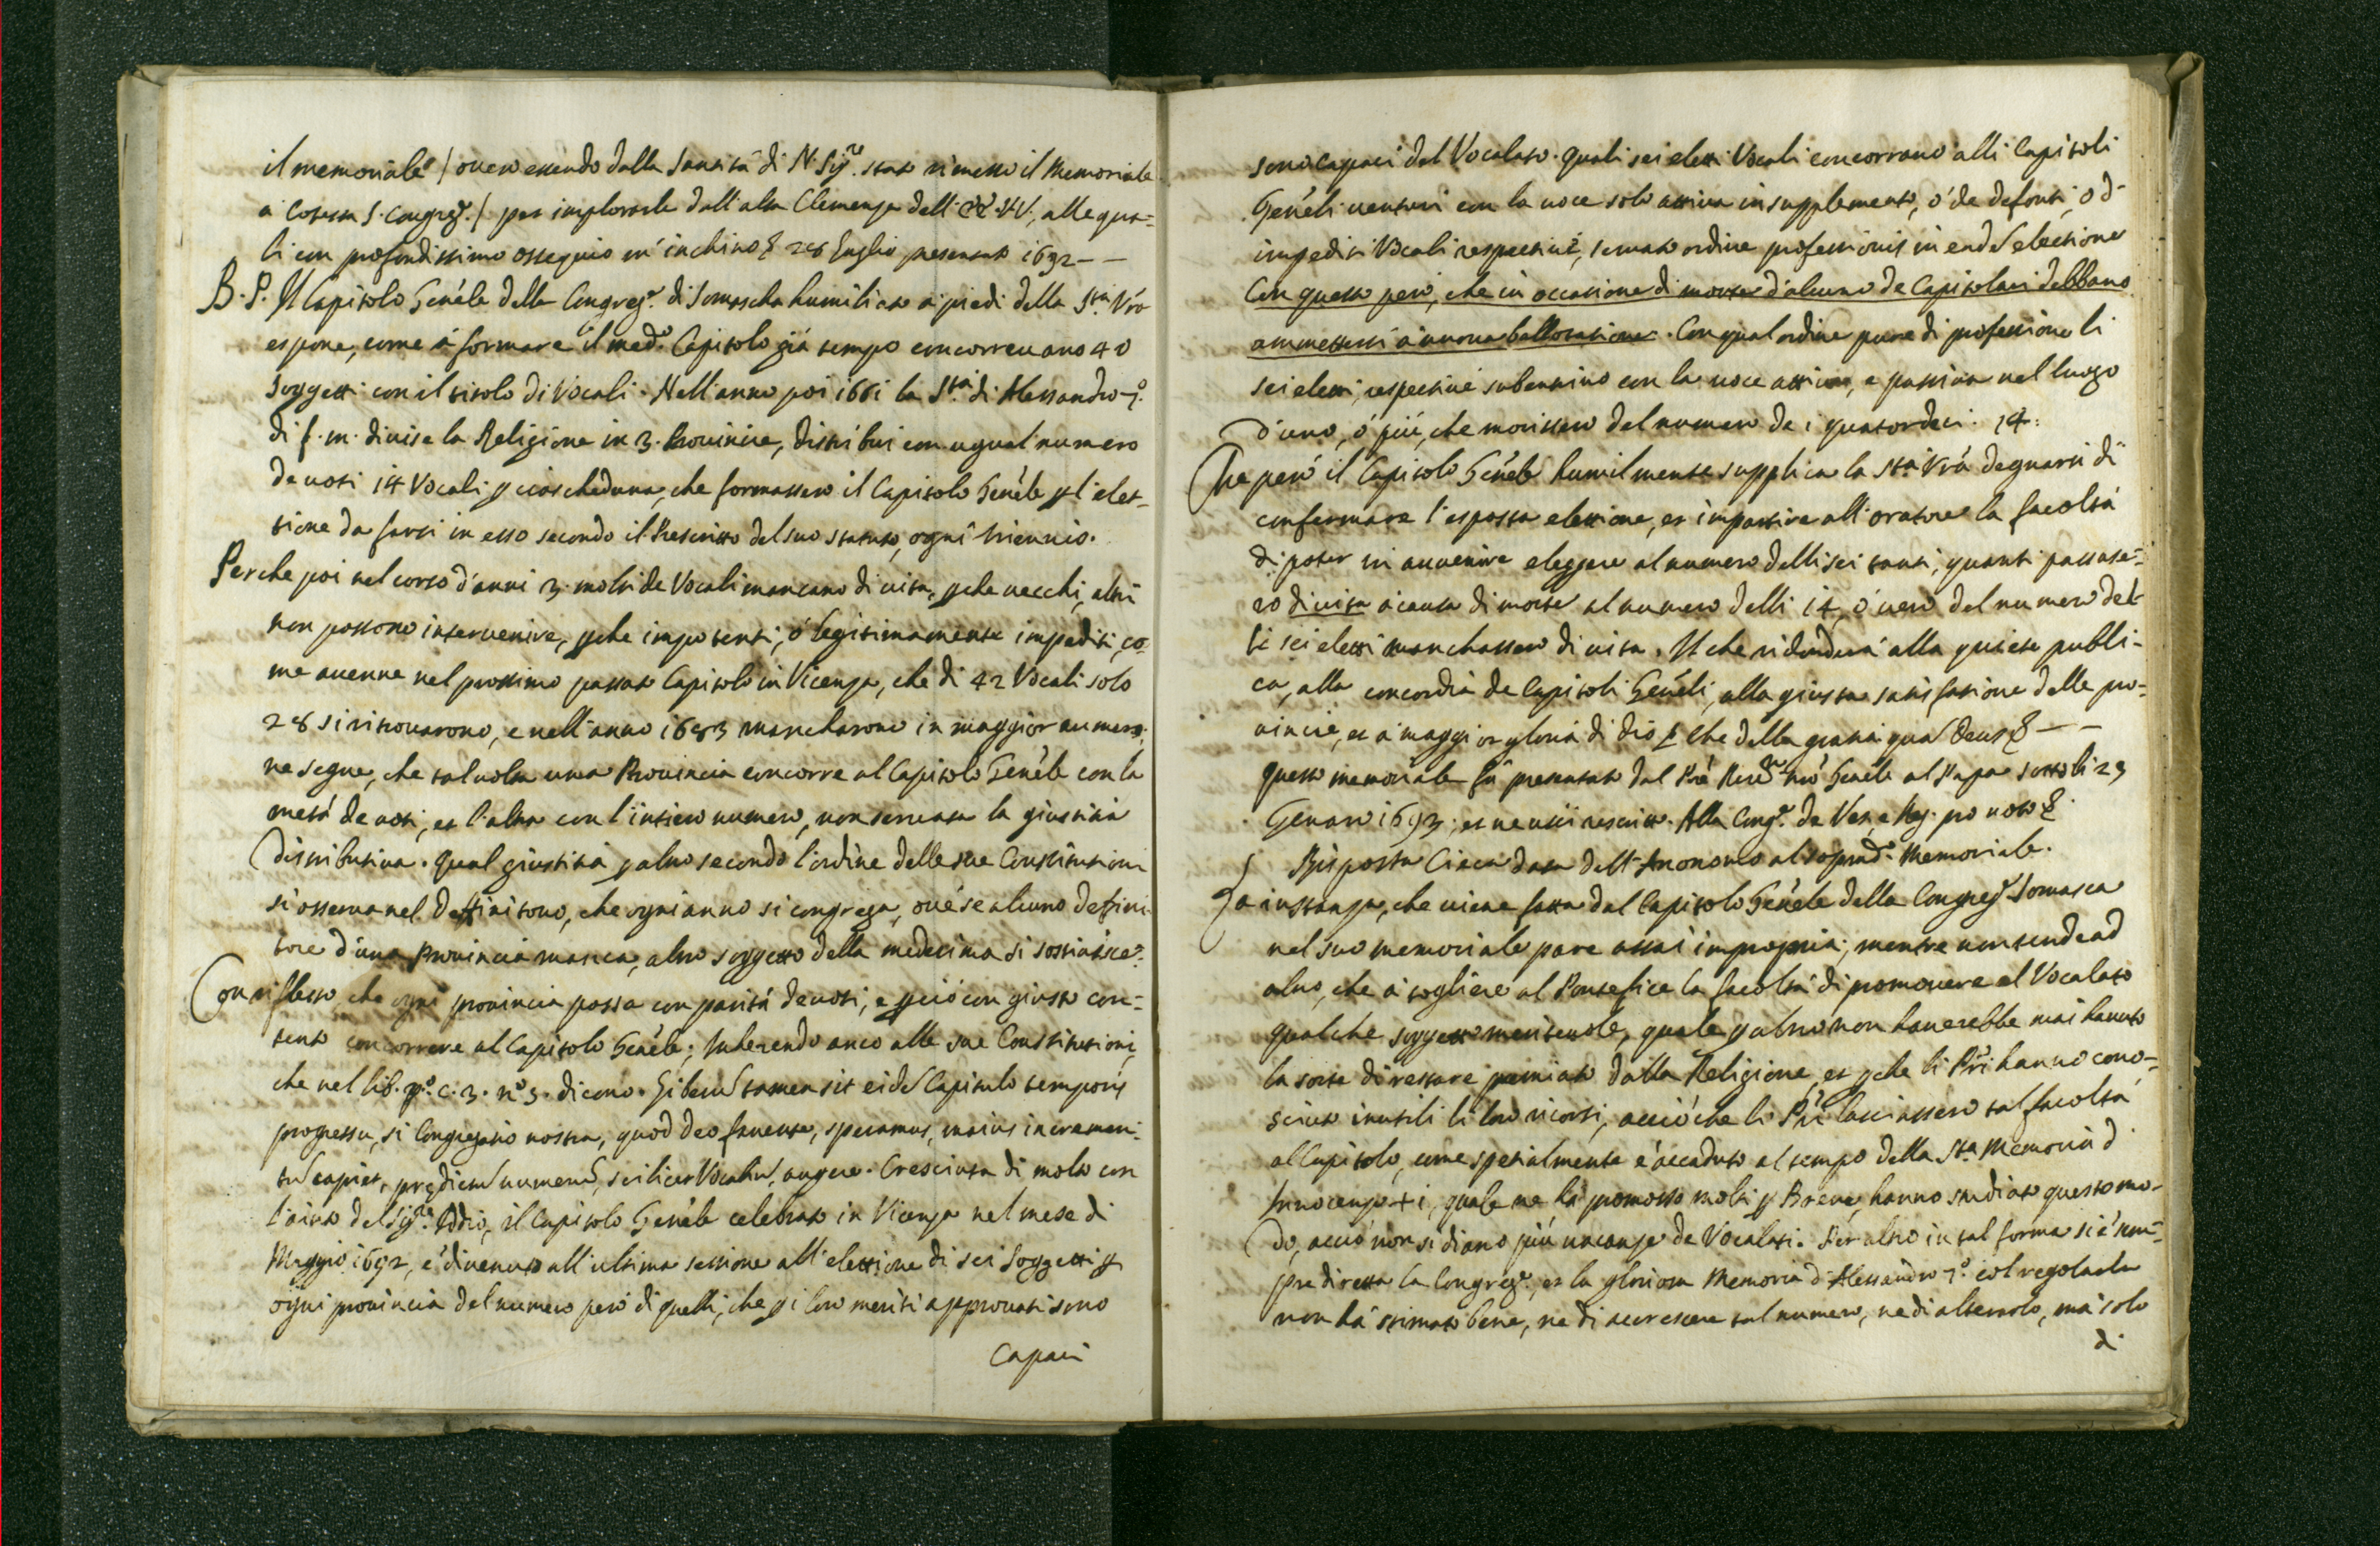 il memoriale / ouero essendo dalla Santità di N. Sig.re stato rimesso il Memoriale
à cotesta S. Congreg.e / per implorarle dall'alta Clemenza dell' EE. VV., alle qua=
li con profondissimo ossequio m'inchino &c 28 Luglio presentato 1692 — —
B. P. Il Capitolo Gen̄ale della Congreg.e di Somascha humiliato a' piedi della S.tà Vrã
espone, come à formare il med.o Capitolo già tempo concorreuano 40
soggetti con il titolo di Vocali. Nell'anno poi 1661 la S.tà di Alessandro 7.o
di f. m. diuise la Religione in 3. Prouincie, distribuì con ugual numero
de uoti 14 Vocali ꝑ ciascheduna, che formassero il Capitolo Gen̄ale ꝑ l'elet=
tione da farsi in esso secondo il Prescritto del suo statuto, ogni triennio.
Perche poi nel corso d'anni 3. molti de Vocali mancano di uita, ꝑche uecchi, altri
non possono interuenire, ꝑche impotenti, ò legitimamente impediti, co=
me auenne nel prossimo passato Capitolo in Vicenza, che di 42 Vocali solo
28 si ritrouarono, e nell'anno 1683 mancharono in maggior numero;
ne segue, che taluolta una Prouincia concorre al Capitolo Gen̄ale con la
metà de uoti, et l'altra con l'intiero numero, non seruata la giustitia
distributiua. Qual giustitia ꝑ altro secondo l'ordine delle sue Constitutioni
si osserua nel Deffinitorio, che ogni anno si congrega, oue se alcuno deffini=
tore d'una Prouincia manca, altro soggetto della medesima si sostituisce.
Con riflesso che ogni prouincia possa con parità de uoti, e ꝑciò con giusto con=
tento concorrere al Capitolo Gen̄ale; Inherendo anco alle sue Constitutioni,
che nel lib. p.o c. 3. n.o 3. dicono. Liberũ tamen sit eidẽ Capitulo temporis
progressu, si Congregatio nostra, quod Deo fauente, speramus, maius incremen=
tũ capiet, prędictũ numerũ, scilicet Vocaliũ, augere. Cresciuta di molto con
l'aiuto del Sig.re Iddio, il Capitolo Gen̄ale celebrato in Vicenza nel mese di
Maggio 1692, è diuenuto all'ultima sessione all'elettione di sei soggetti ꝑ
ogni prouincia del numero però di quelli, che ꝑ i loro meriti approuati sono
Capaci
sono capaci del Vocalato. Quali sei eletti Vocali concorrano alli Capitoli
Gen̄ali uenturi con la uoce solo attiua in supplemento, ò de defonti, ò d'
impediti Vocali respectiuè, seruato ordine professionis in eadẽ electione
Con questo però, che in occasione di morte d'alcuno de Capitolari debbano
ammettersi à nuoua ballotatione. Con qual ordine pure di professione li
sei eletti, respectiuè subentrino con la uoce attiua, e passiua nel luogo
d'uno, ò più, che morissero del numero de i quatordeci. 14.
Che però il Capitolo Gen̄ale humilmente supplica la S.tà Vrã degnarsi di
confermare l'esposta elettione, et impartire all'oratore la facoltà
di poter in auuenire eleggere al numero delli sei tanti, quanti passase=
ro di uita à causa di morte al numero delli 14, ò uero del numero del=
li sei eletti manchassero di uita. Il che ridonderà alla quiete publi=
ca, alla concordia de Capitoli Gen̄ali, alla giusta satisfatione delle pro=
uincie, et à maggior gloria di Dio &c Che della gratia quã Deus &c — —
Questo memoriale fù presentato dal Prẽ Reu.mo nrõ Gen̄ale al Papa sotto li 23
Genaro 1693; et ne uscì rescritto. Alla Cong.e de Vesc. e Reg. pro uoto &c.
Risposta Circa data dall'Anonomo al soprad.o Memoriale.
La instanza, che uiene fatta dal Capitolo Gen̄ale della Congreg.e Somasca
nel suo memoriale pare assai impropria; mentre non tende ad
altro, che à togliere al Pontefice la facoltà di promouere al Vocalato
qualche soggetto meriteuole, quale ꝑ altro non hauerebbe mai hauuto
la sorte di restare premiato dalla Religione, et ꝑche li Prĩ hanno cono=
sciuto inutili li loro ricorsi, acciò che li Prĩ lasciassero tal facoltà
al Capitolo, come spetialmente è accaduto al tempo della S.ta Memoria d'
Innocenzo XI, quale ne hà promosso molti ꝑ Breue, hanno studiato questo mo=
do, acciò non si diano più uacanze de Vocalati. Per altro in tal forma si è sem=
pre diretta la Congreg.e, et la gloriosa Memoria d'Alessandro 7.o col regolarla
non hà stimato bene, ne di accrescere tal numero, ne di alterarlo, mà solo
di